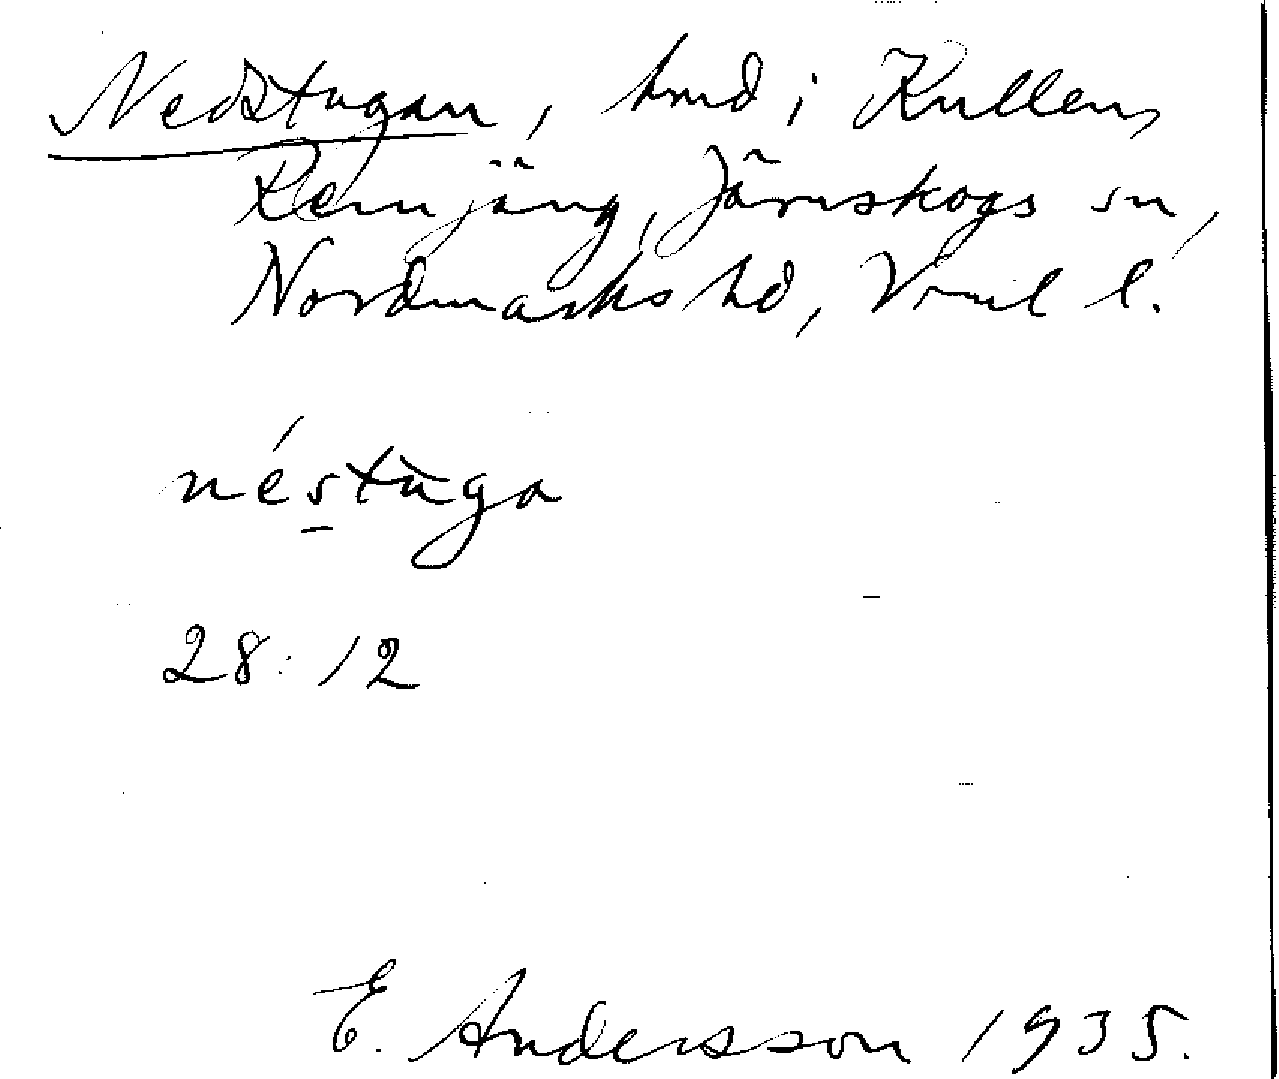 Nedstugan, hmd i Kullen,
Remjäng, Järnskogs sn,
Nordmarks hd, Vrml l.
néstùga
28:12
E. Andersson 1935.